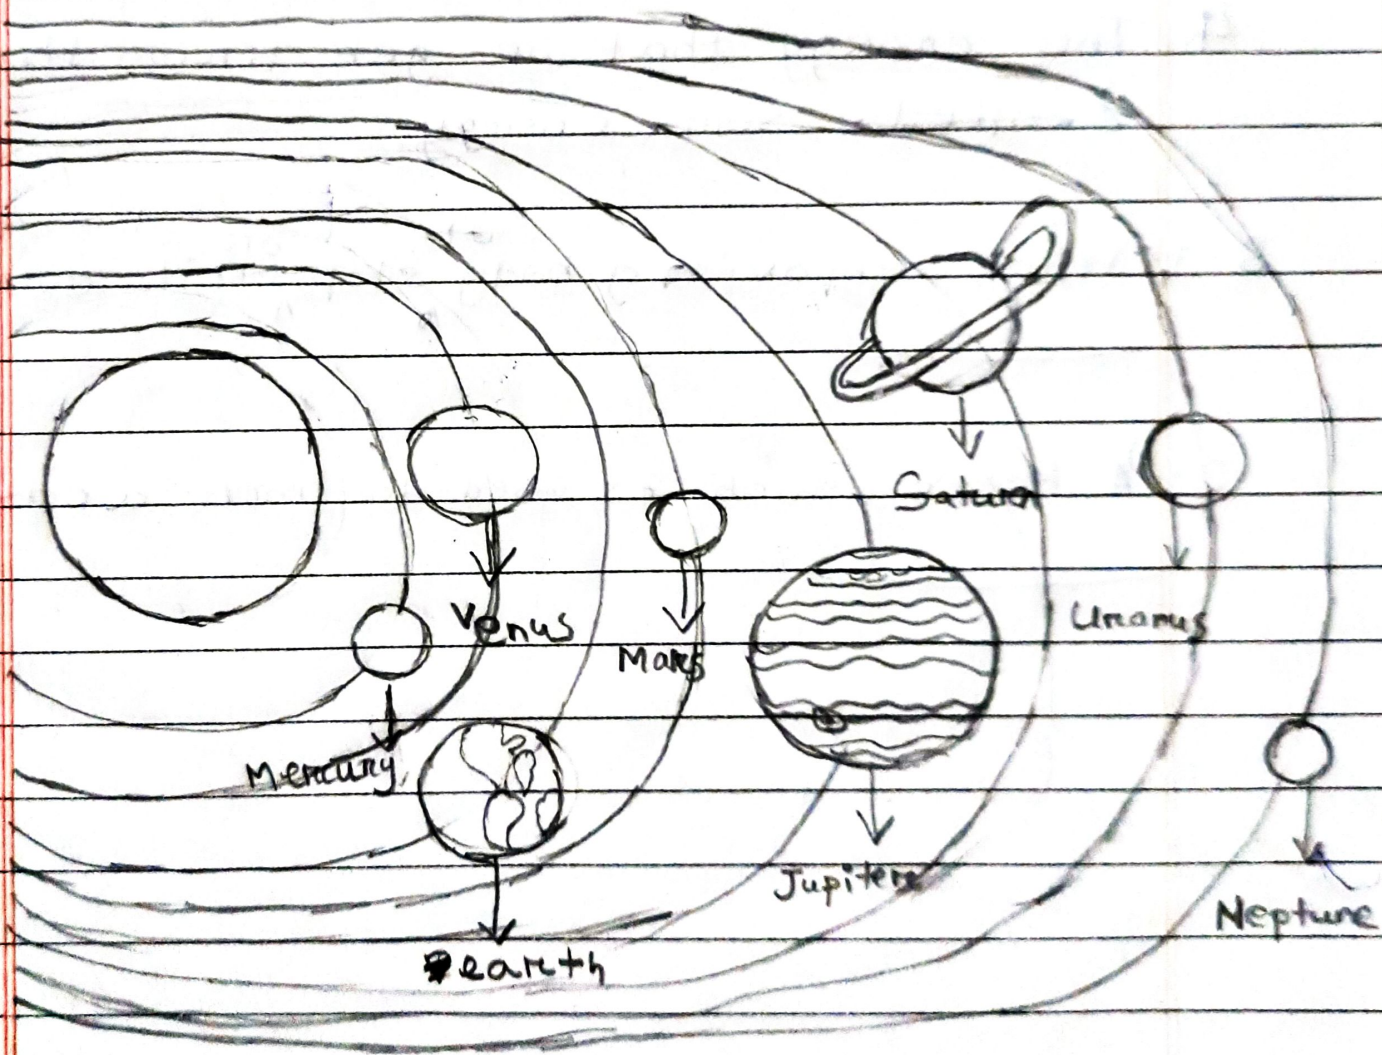 Saturn
Venus
Uranus
Mars
Mercury
Jupiter
Neptune
earth